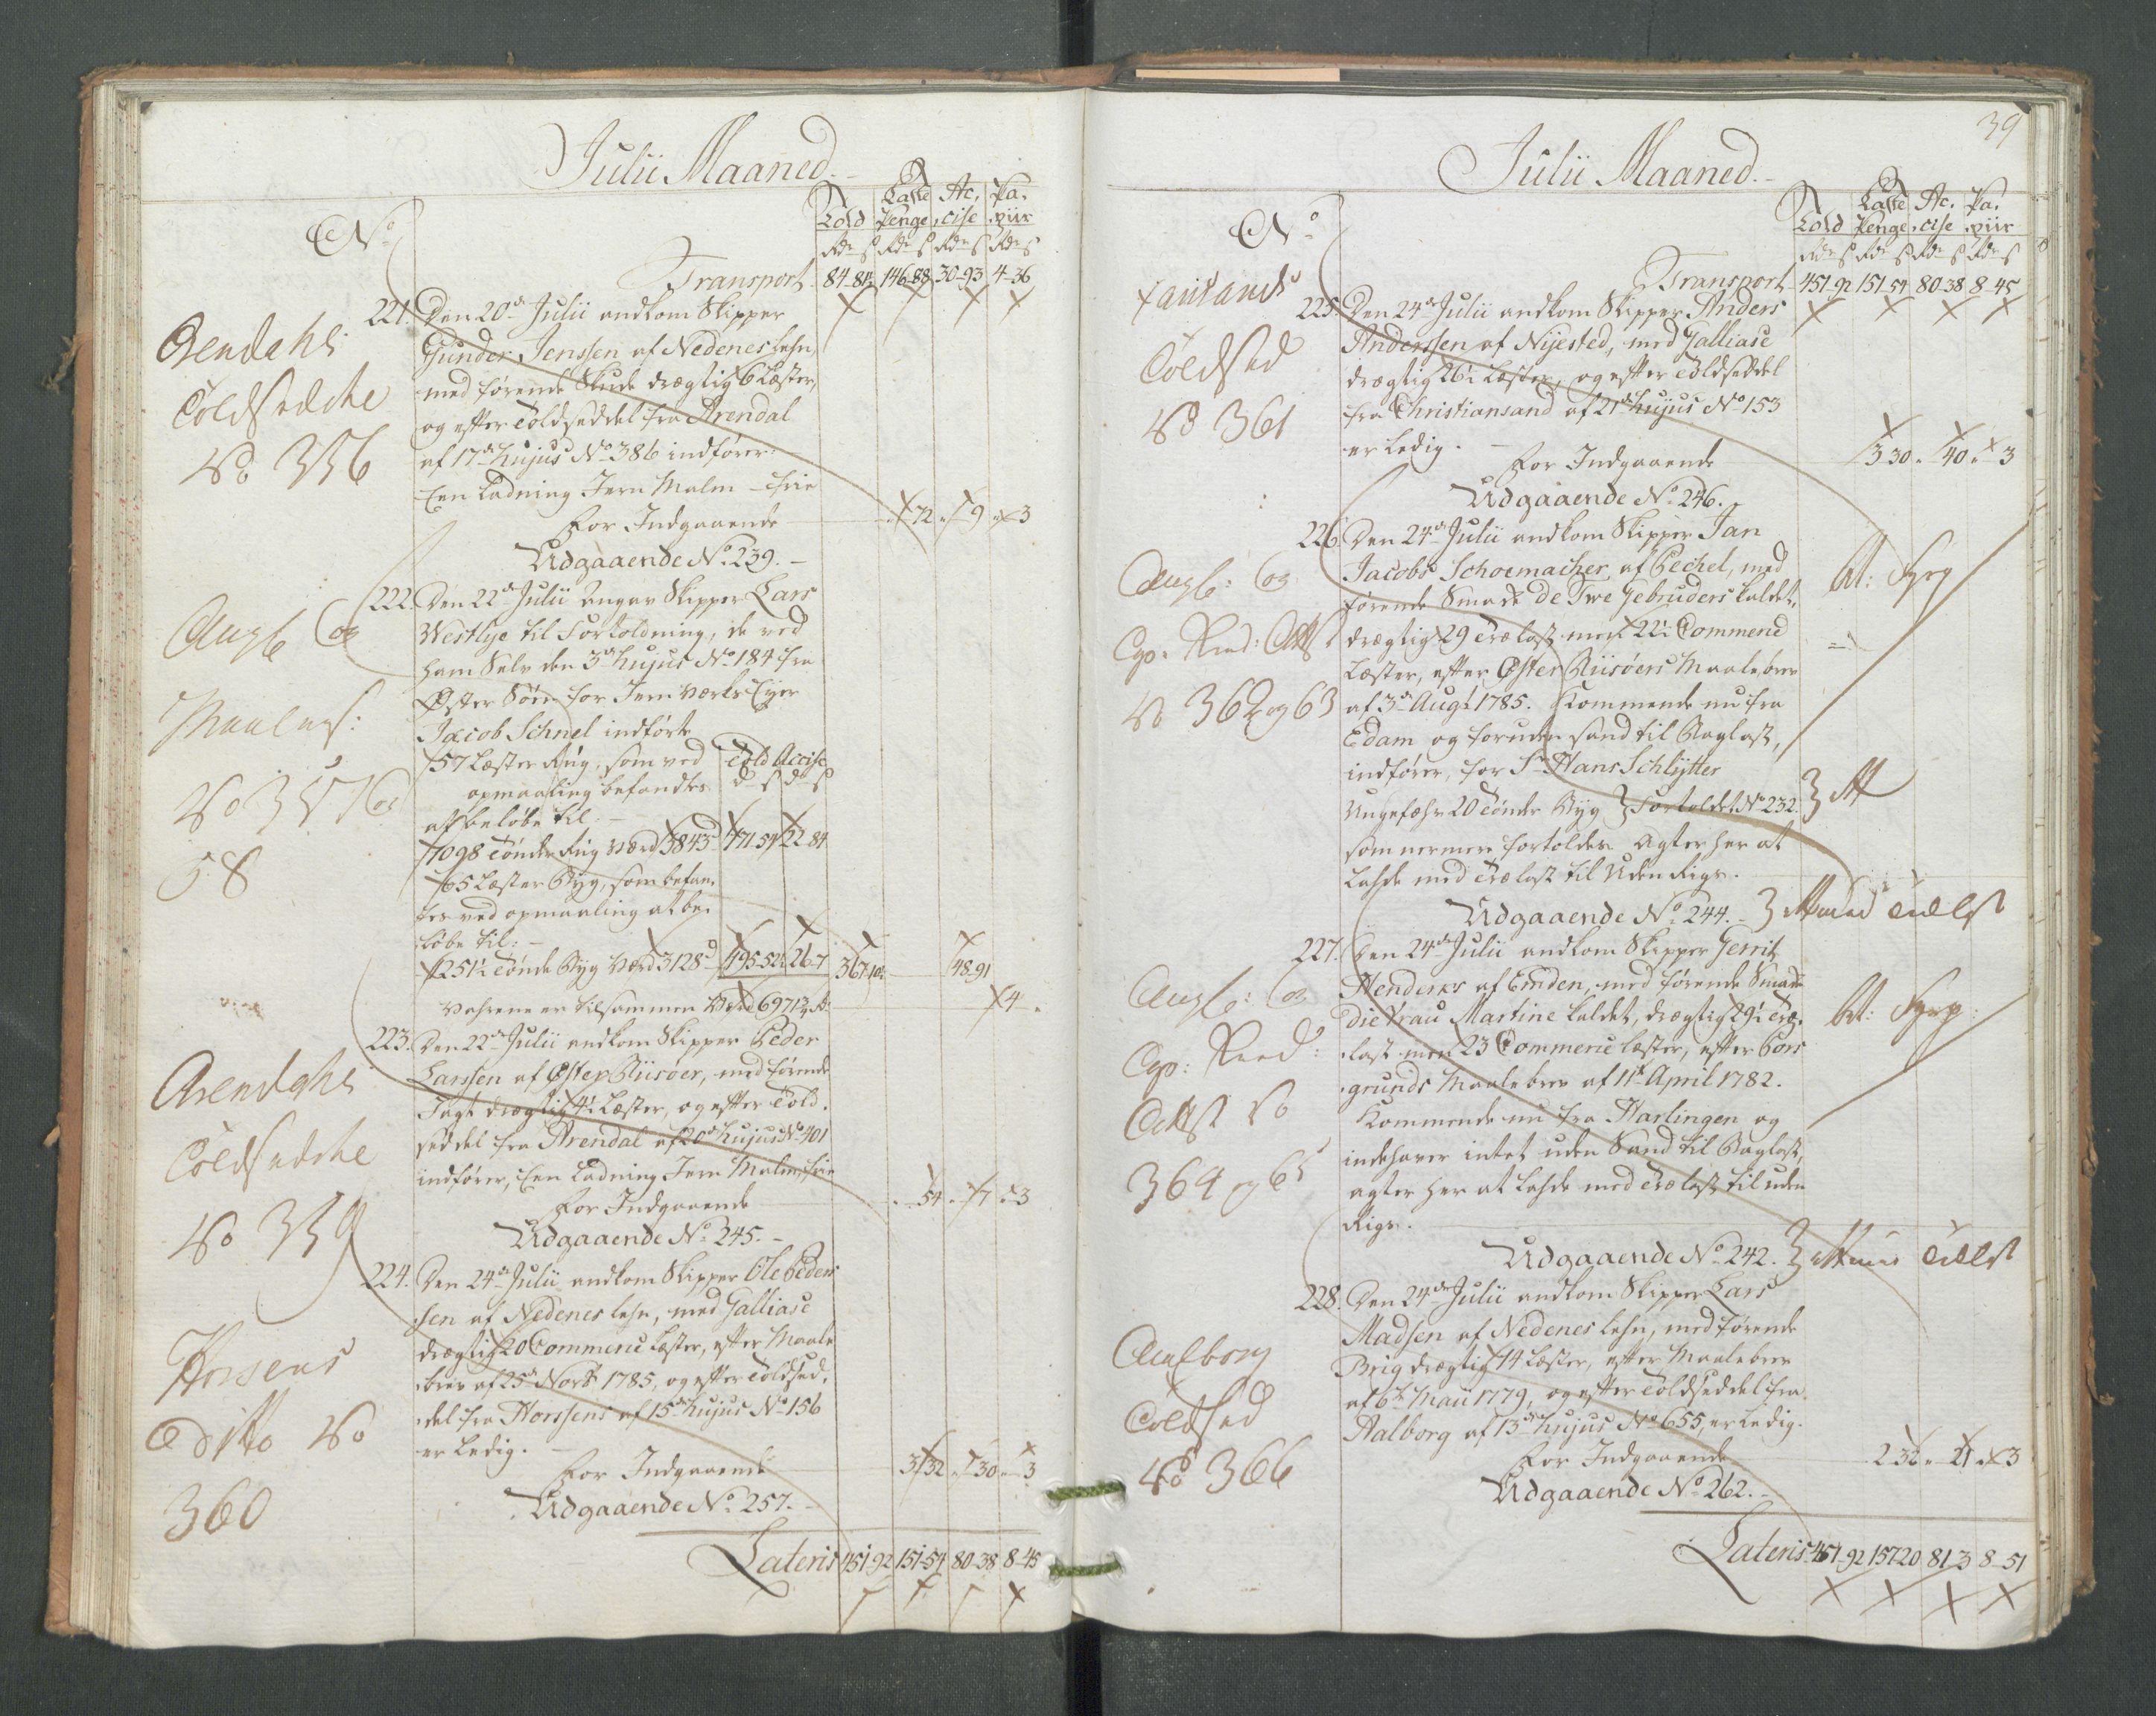 Julii Maaned.
No
Told
Laste Penge
Ac,cise
Pa,piir
Rd s Rd s Rd s Rd s
Transport 84-81½ 146-88 30-93 4-36
221. Den 20de Julii andkom Skipper
Gunder Jenssen af Nedenes Lehn,
med førende Skude drægtig 6 Læster,
og efter Toldseddel fra Arendal
af 17de hujus No 386 indfører:
Een Ladning Jern Malm - frie
For Indgaaende - 72 - 9 - 3
Udgaaende No 239.
Arendahls
Toldseddel
No 356
222. Den 22de Julii Angav Skipper Lars
Westlye til Fortoldning, de ved
ham Selv den 3de hujus No 184 fra
Øster Søen for Jern Værks Eyer
Jacob Schnel indførte
57 Læster Rug, som ved
Told Accise
opmaaling befandtes
d s d s
at beløbe til:
1098 Tønder Rug Værd 3843d 171-54 22-84
65 Læster Byg, som befan,
tes ved opmaaling at be,
løbe til:
1251½ Tønde Byg Værd 3128d 195-52½ 26-7 367-10½ 48-91
Vahrene er tilsammen Værd 6971 4
Angb og
Maalns:
No 357 og
58
223. Den 22de Julii andkom Skipper Peder
Larssen af Øster Riisøer, med førende
Jagt drægtig 4½ Læster, og efter Told,
seddel fra Arendal af 20de hujus No 401
indfører, Een Ladning Jern Malm, frie
For Indgaaende - 54 - 7 - 3
Udgaaende No 245.
Arendahls
Toldseddel
No 359
224. Den 24de Julii andkom Skipper Ole Peder
sen af Nedenes Lehn, med Galliase
drægtig 20 Commerce Læster, efter Maale
brev af 25de Novb 1785, og efter Toldsed,
del fra Horssens af 15de hujus No 156
er Ledig.
For Indgaaende 3-32 - 30 - 3
Udgaaende No 257.
Horsens
ditto No
360
Lateris 451-92 151-54 80-38 8-45
39
Julii Maaned.
No
Told
Laste Penge
Ac,cise
Pa,piir
Rd s Rd s Rd s Rd s
Transport 451-92 151-54 80-38 8-45
225. Den 24de Julii andkom Skipper Anders
Anderssen af Nijested, med Galliase
drægtig 26½ Læster, og efter Toldseddel
fra Christiansand af 21de hujus No 153
er Ledig.
For Indgaaende 3 30 - 40 - 3
Udgaaende No 246.
Xansands
Toldsed
No 361
226. Den 24de Julii andkom Skipper Jan
Jacobs Schoemacher af Pechel, med
førende Smack De Twe Gebruders kaldet,
drægtig 29 Trælast men 22½ Commerce
Læster, efter Øster Riisøers Maalebrev
af 3de Augt 1785. Kommende nu fra
Edam og foruden Sand til Baglast,
indfører, for Sr Hans Schlytter
Ungefæhr 20 Tønder Byg } Fortoldet No 232.
som nermere fortoldes Agter her at
Lahde med Trælast til Uden Rigs.
Udgaaende No 244.
Angb: og
Cop. Reed: Attst
No 362 og 63
bt: Fyrp
227. Den 24de Julii andkom Skipper Gerrit
Henderxs af Emden, med førende Smack
Die Vrau Martine kaldet, drægtig 29½ Træ,
last men 23 Commerce Læster, efter Pors
grunds Maalebrev af 11te April 1782.
Kommende nu fra Harlingen og
indehaver intet uden Sand til Baglast,
agter her at Lahde med Trælast til uden
Rigs.
Udgaaende No 242.
Angb: og
Cop: Reed:
Attst No
364 og 65
bt: Fyrp:
228. Den 24de Julii andkom Skipper Lars
Madsen af Nedenes Lehn, med førende
Brig drægtig 14 Læster, efter Maalebrev
af 6te Maii 1779, og efter Toldseddel fra
Aalborg af 13de hujus No 655, er Ledig.
For Indgaaende 2 32 - 21 - 3
Udgaaende No 262.
Aalborg
Toldsed
No 366
Lateris 451-92 157 20 81-3 8-51